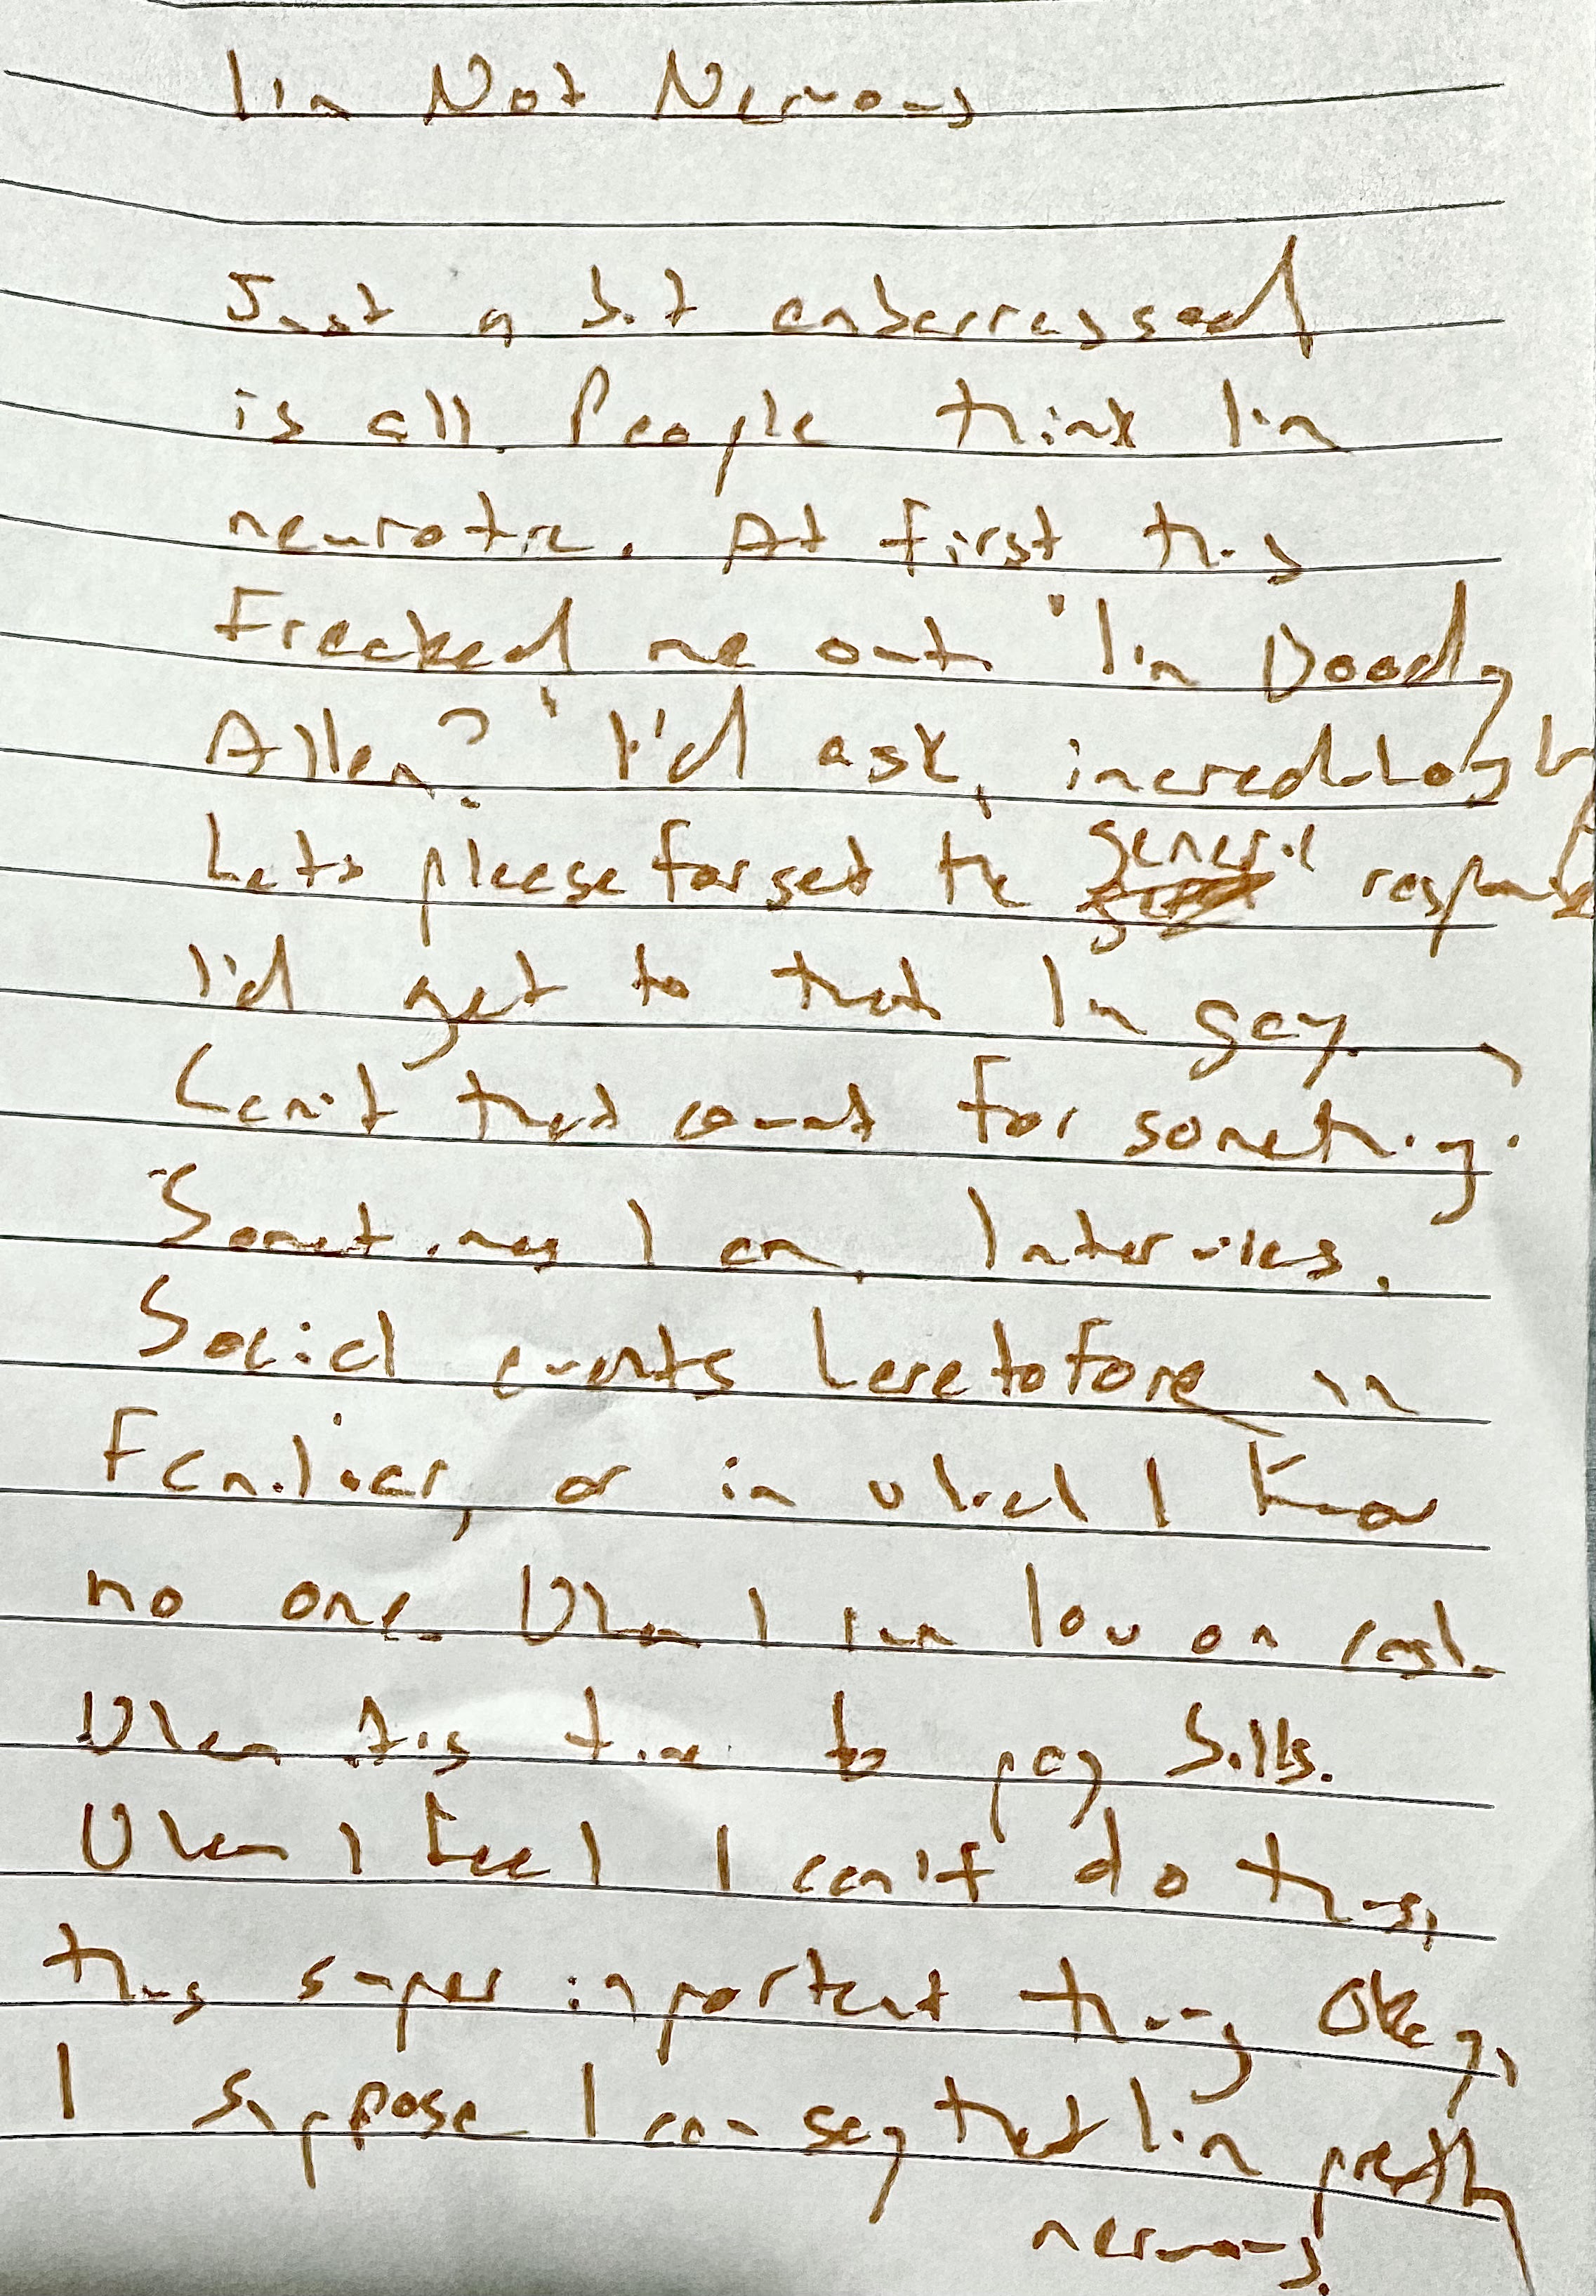 I'm Not Nervous
Just a bit emberressed
is all. People think I'm
neurotic. At first this
Freaked me out. "I'm Woody
Allen?" I'd ask, incredulously.
Let's please forget the general response
I'd get to that. I'm gay.
Can't that count for something.
Sometimes I am. Interviews.
Social events heretofore un
Familiar, or in which I know
no one. When I run low on cash.
When it's time to pay bills.
When I feel I can't do this,
this super important thing. Okay,
I suppose I can say that I'm pretty
nervous.